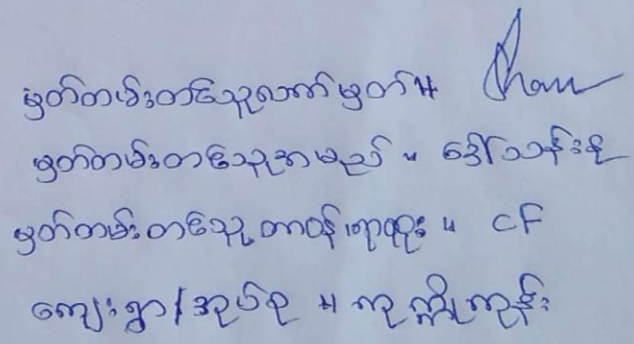 မှတ်တမ်းတင်သူလက်မှတ်။
မှတ်တမ်းတင်သူအမည် ။ ဒေါ်သန်းနု
မှတ်တမ်းတင်သူ့တာဝန်/ရာထူး ။ CF
ကျေးရွာ/အုပ်စု ။ ကုက္ကိုကုန်း